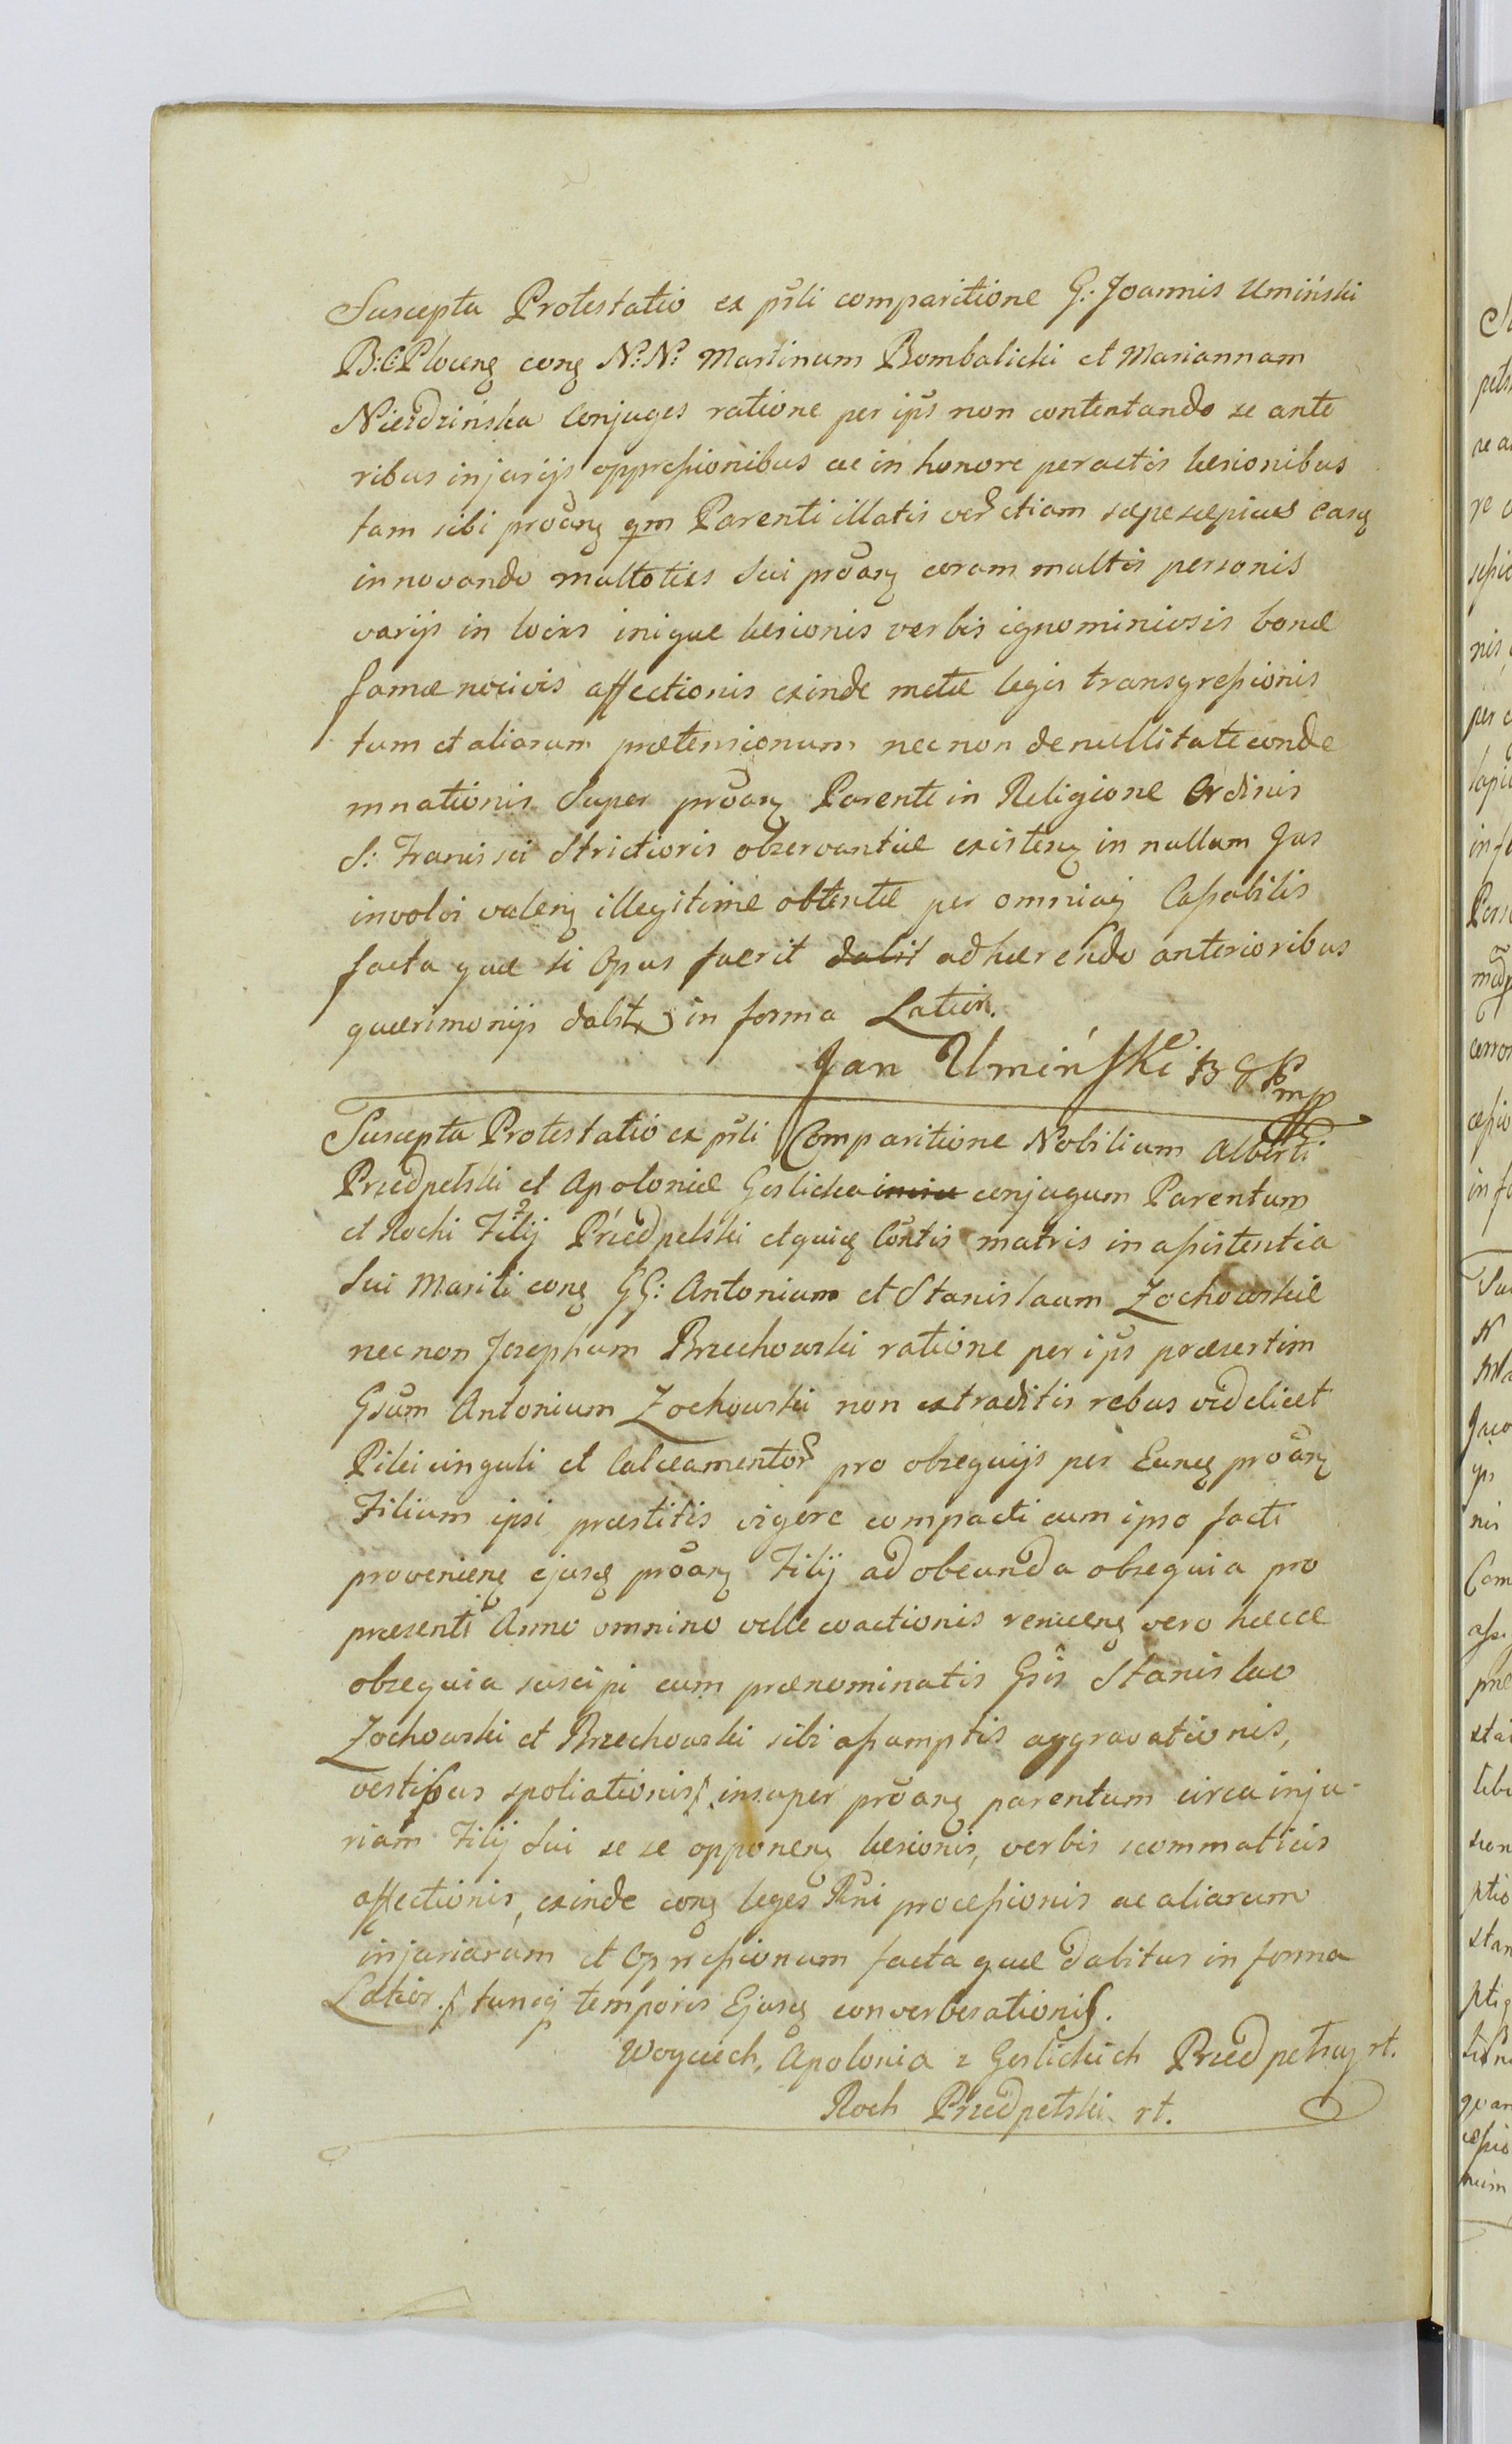 Suscepta Protestatio ex pñli comparitione G: Joannis Umiński
B:C:Plocens cong N:N: Martinum Bombalicki et Mariannam
Niedzinska Conjuges ratione per ips non contentando se ante
ribus injurijs oppressionibus ac in honore peractis læsionibus
tam sibi proãng qm Parenti illatis etiam sæpe sæpius easq
innovando multoties Sui proãng coram multis personis
varijs in locis inique læsionis verbis ignominiosis bonæ
famæ nocivis affectionis exinde metæ legis transgressionis
tum et aliarum prætensionum nec non de nullitate conde
mnationis Super proãng Parente in Religione Ordinis
S: Francisci Strictioris observantiæ existeng in nullum Jus
involvi valeng illegitime obtentæ per omniaq Cassabilis
facta quæ si Opus fuerit dabit adhærendo anterioribus
quærimonijs dabitr in forma Latiori.
Jan Umiński B G P mpp
Suscepta Protestatio ex pñli Comparitione Nobilium Alberti
Przedpełski et Apoloniæ Geslicka conjugum Parentum
et Rochi Filij Przedpelski matris in assistentia
Sui Mariti cong GG: Antonium et Stanislaum Zochowskie
nec non Josephum Brzechowski ratione per ips præsertim
Gsum Antonium Zochowski non extraditis rebus videlicet
Pilei cinguli et Calceamentor pro obsequijs per Eunq proãng
Filium ipsi præstitis vigore compacti cum ipso facti
provenieng ejusq proãng Filij ad obeunda obsequia pro
præsenti Anno omnino velle coactionis renueng vero hæcce
obsequia suscipi cum prænominatis Gsis Stanislao
Zochowski et Brzechowski sibi assumptis aggravationis,
vestibus spoliationis, insuper proãng parentum circa inju-
riam Filij Sui se se opponeng læsionis, verbis scommaticis
affectionis, exinde cong leges Rñi processionis ac aliarum
injuriarum et Opressionum facta quæ dabitur in forma
Latior. tuncq temporis Ejusq converberationis.
Woyciech, Apolonia z Geslickich Przedpełscy rt.
Roch Przedpełski rt.